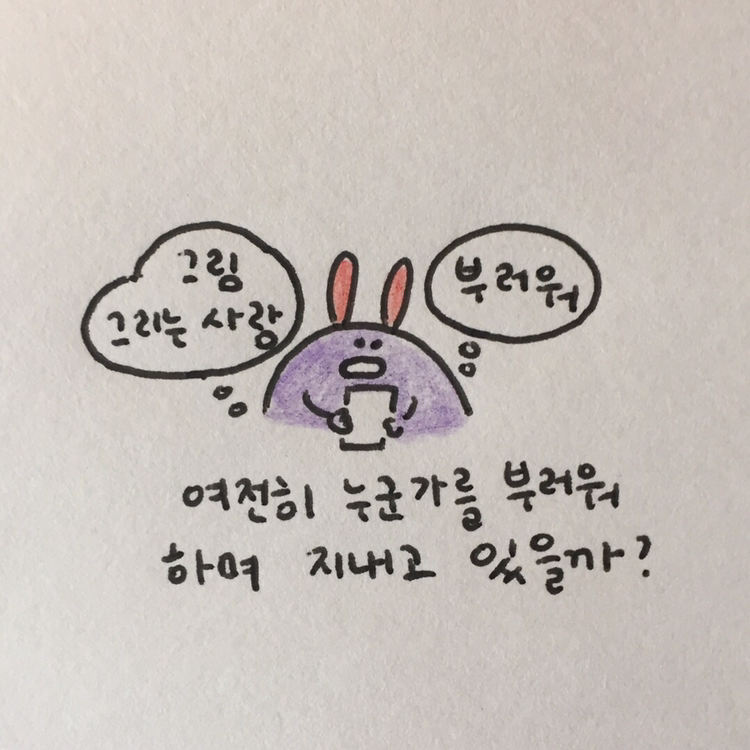 그림
그리는 사람
부러워
여전히 누군가를 부러워
하며 지내고 있을까?